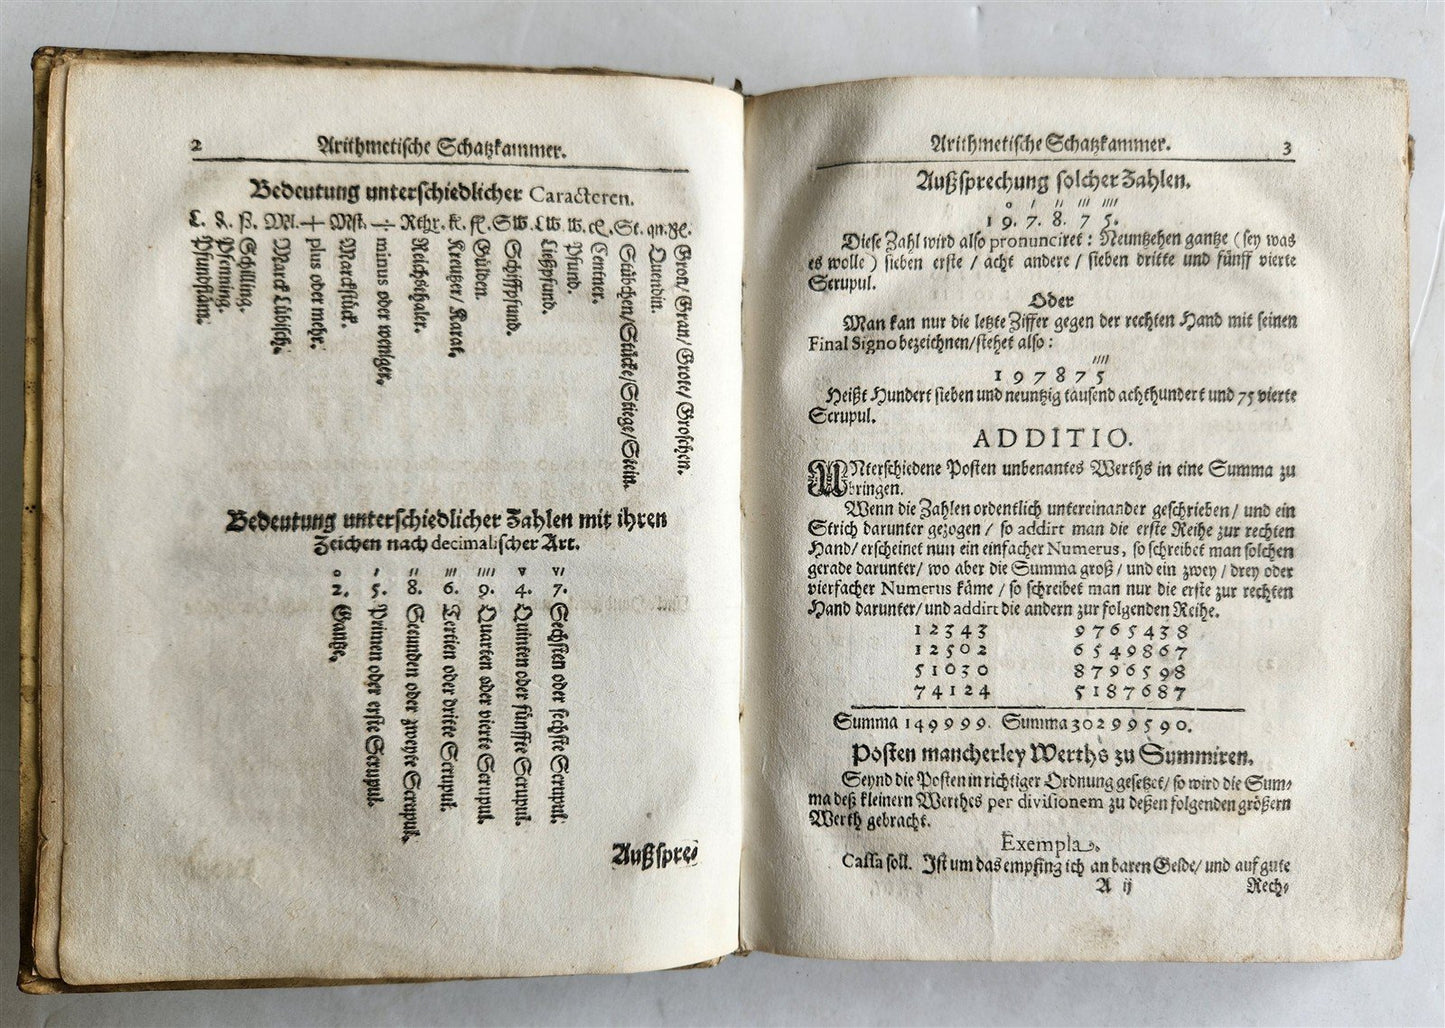 2 Arithmetische Schatzkammer.
Bedeutung unterschiedlicher Caracteren.
L. ₰. ß. Ml. + Mſt. ÷ Rthr. k. fl. S℔. L℔. ℔. cl. St. qn. gl.
Pfundflām.
Pfenning.
Schilling.
Marck Lübisch.
plus oder mehr.
Marckstück.
minus oder weniger.
Reichsthaler.
Kreutzer/ Karat.
Gülden.
Schiffpfund.
Ließpfund.
Pfund.
Centner.
Stübchen/Stücke/Stiege/Stein.
Quendin.
Grott/ Gran/ Grote/ Groschen.
Bedeutung unterschiedlicher Zahlen mit ihren
Zeichen nach decimalischer Art.
o ı ıı ııı ıııı v vı
2. 5. 8. 6. 9. 4. 7.
Gantze.
Primen oder erste Scrupul.
Secunden oder zweyte Scrupul.
Tertien oder dritte Scrupul.
Quarten oder vierte Scrupul.
Quinten oder fünffte Scrupul.
Sechsten oder sechste Scrupul.
Außspre-
Arithmetische Schatzkammer. 3
Außsprechung solcher Zahlen.
o ı ıı ııı ıııı
1 9. 7. 8. 7 5.
Diese Zahl wird also pronunciret : Neuntzehen gantze ( sey was
es wolle ) sieben erste / acht andere / sieben dritte und fünff vierte
Scrupul.
Oder
Man kan nur die letzte Ziffer gegen der rechten Hand mit seinen
Final Signo bezeichnen/stehet also :
ıııı
1 9 7 8 7 5
Heißt Hundert sieben und neuntzig tausend achthundert und 75 vierte
Scrupul.
ADDITIO.
UNterschiedene Posten unbenantes Werths in eine Summa zu
bringen.
Wenn die Zahlen ordentlich untereinander geschrieben/ und ein
Strich darunter gezogen / so addirt man die erste Reihe zur rechten
Hand/ erscheinet nun ein einfacher Numerus, so schreibet man solchen
gerade darunter/ wo aber die Summa groß / und ein zwey / drey oder
vierfacher Numerus käme / so schreibet man nur die erste zur rechten
Hand darunter/ und addirt die andern zur folgenden Reihe.
1 2 3 4 3 9 7 6 5 4 3 8
1 2 5 0 2 6 5 4 9 8 6 7
5 1 0 3 0 8 7 9 6 5 9 8
7 4 1 2 4 5 1 8 7 6 8 7
Summa 1 4 9 9 9 9. Summa 3 0 2 9 9 5 9 0.
Posten mancherley Werths zu Summiren.
Seynd die Posten in richtiger Ordnung gesetzet/ so wird die Sum-
ma deß kleinern Werthes per divisionem zu deßen folgenden größern
Werth gebracht.
Exempla.
Cassa soll. Ist um das empfing ich an baren Gelde/ und auf gute
A ij Rech-